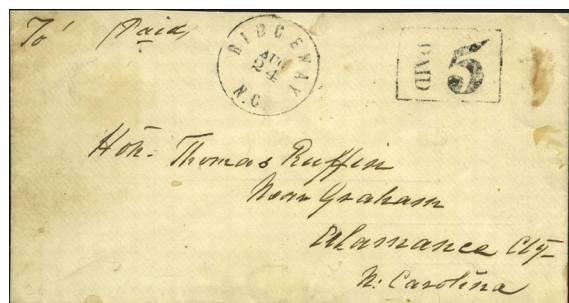 To' Paid
RIDGEWAY
AUG
24
N.C.
PAID 5
Hon. Thomas Ruffin
Near Graham
Alamance Cty-
N. Carolina